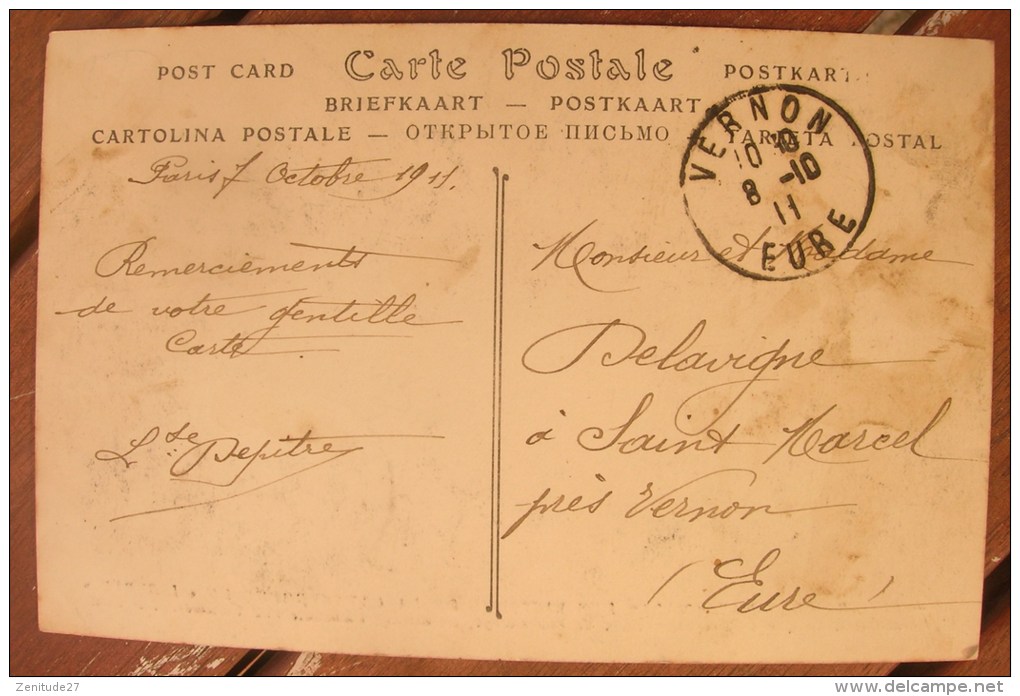 Carte Postale
POST CARD
POSTKART
BRIEFKAART — POSTKAART
CARTOLINA POSTALE — ОТКРЫТОЕ ПИСЬМО - TARJETA POSTAL
VERNON
10
8 -10
11
EURE
Paris 7 Octobre 1911.
Remerciements
de votre gentille
Carte
Lse Depitre
Monsieur et Madame
Delavigne
à Saint Marcel
près Vernon
(Eure)
Zenitude27
www.delcampe.net